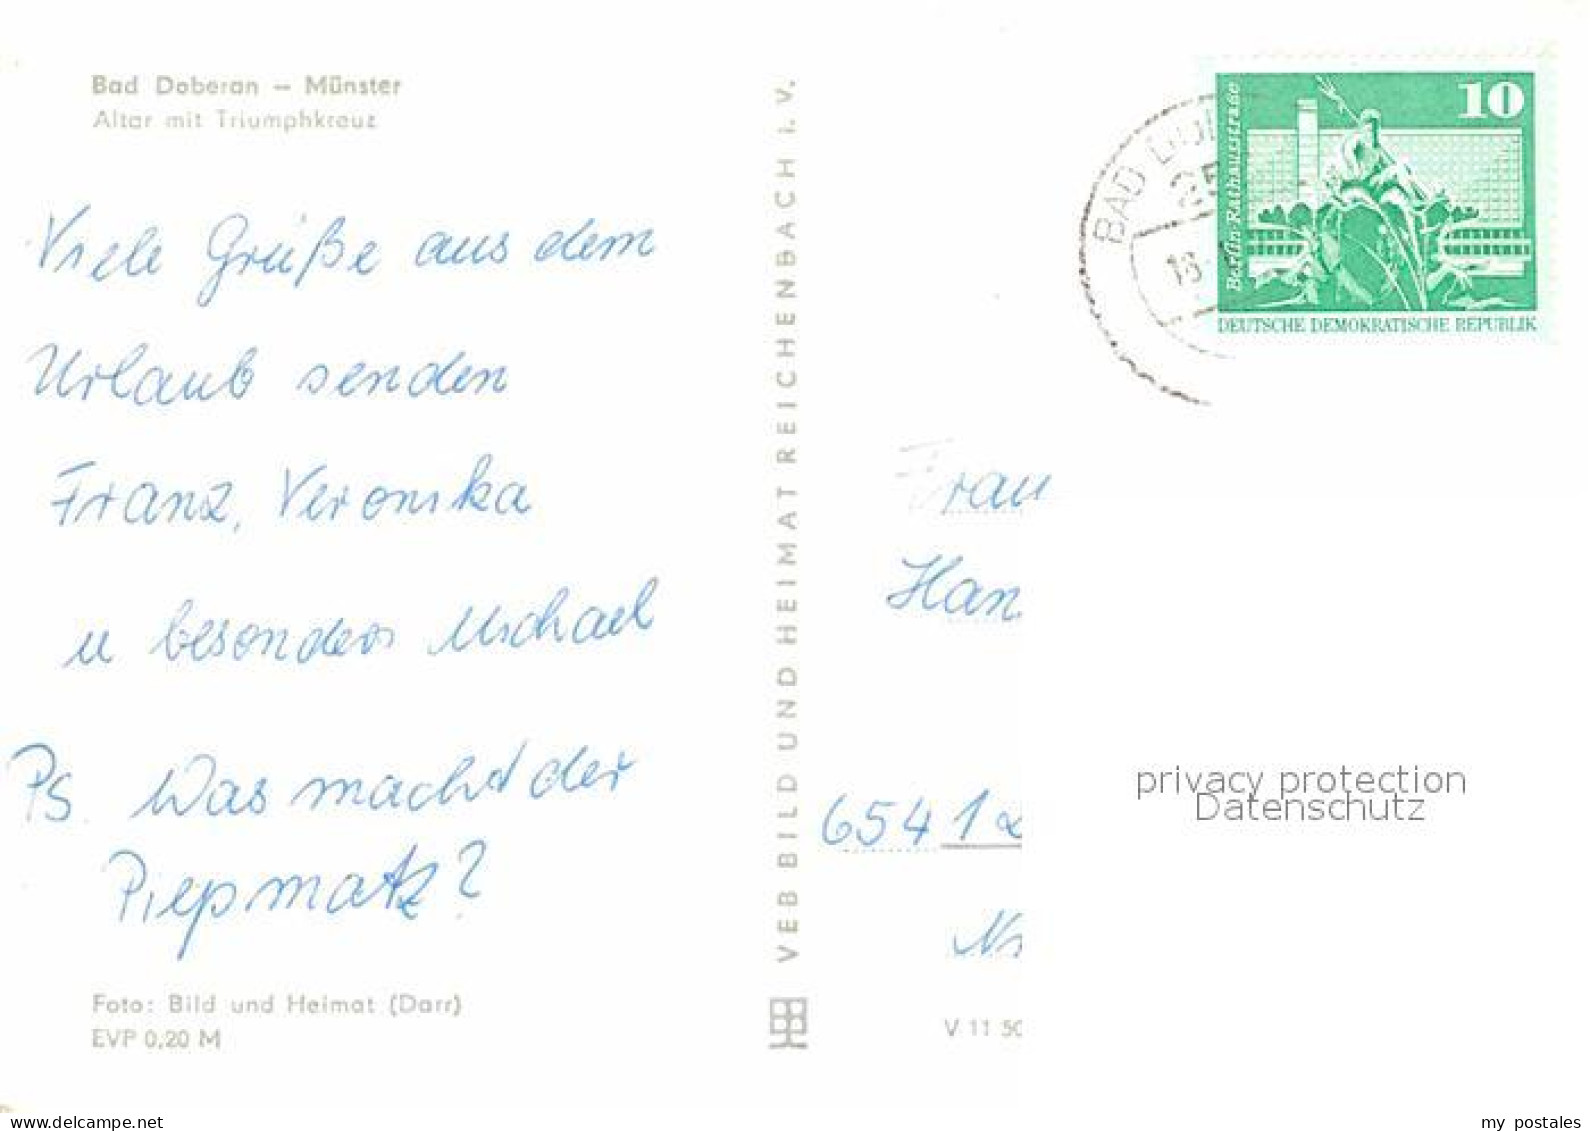 Bad Doberan – Münster
Altar mit Triumphkreuz
Viele Grüße aus dem
Urlaub senden
Franz, Veronika
u besonders Michael
PS. Was macht der
Piepmatz?
Foto: Bild und Heimat (Darr)
EVP 0,20 M
VEB BILD UND HEIMAT REICHENBACH I. V.
BAD
25
18
10
Berlin-Rathausstraße
DEUTSCHE DEMOKRATISCHE REPUBLIK
Frau
Han
6541
V 11 50
privacy protection
Datenschutz
www.delcampe.net
my_postales